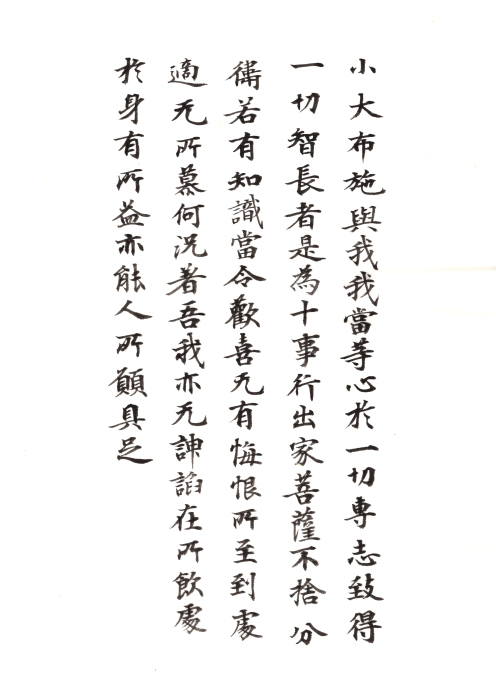 小大布施與我我當等心於一切專志致得
一切智長者是為十事行出家菩薩不捨分
衛若有知識當令歡喜无有悔恨所至到處
適无所慕何況著吾我亦无諛諂在所飲處
於身有所益亦能人所願具足